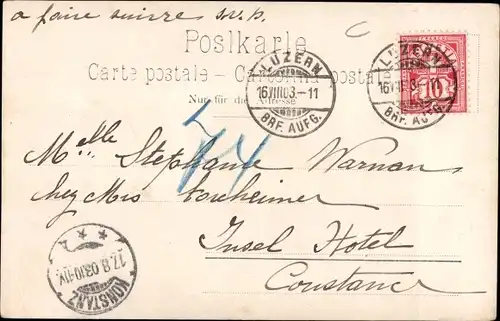 a faire suivre s.v.p.
Postkarle
Carte postale — Cartolina postale
Nur für die Adresse
LUZERN
16.VIII.03.-11
BRF. AUFG.
LUZERN
16.VIII.03.-11
BRF. AUFG.
10
44
Melle Stephanie Warnan
chez Mrs Forcheimer
Insel Hotel
Constance
KONSTANZ
17.8.03.10-11V.